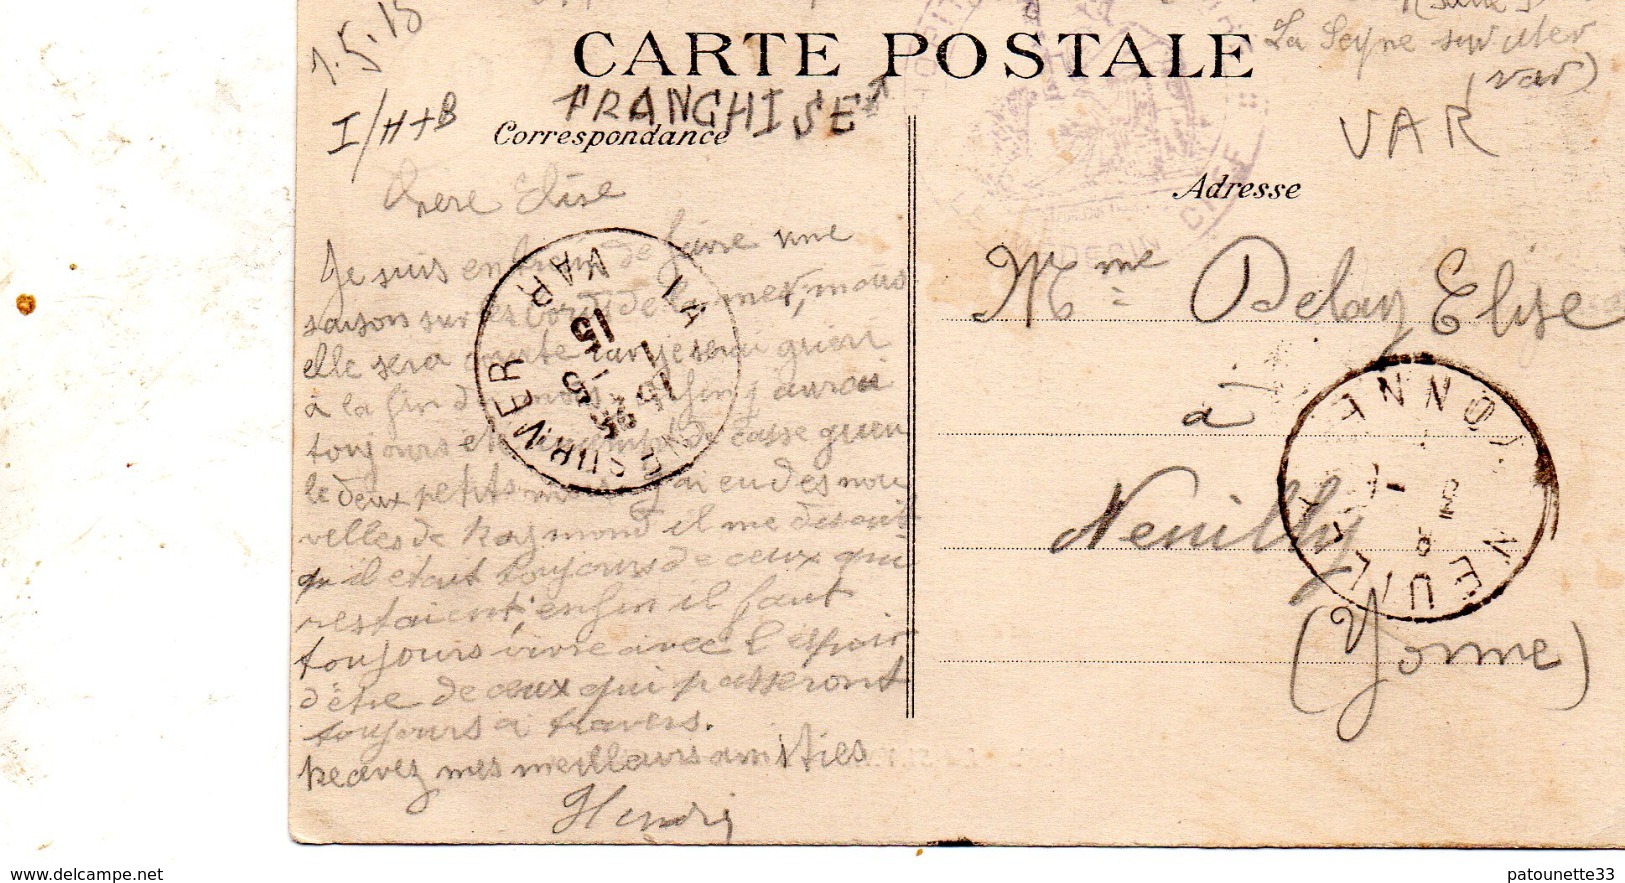 1.5.15
La Seyne sur Mer
(var)
CARTE POSTALE
FRANCHISE
I/H+B
VAR
Correspondance
Adresse
Chere Elise
Je suis en train de faire une
saison sur les bords de la mer, mais
elle sera courte car je serai guéri
à la fin du mois. Enfin j'aurai
toujours été
le deux petits mois. J'ai eu des nou
velles de Raymond il me disait
qu'il etait toujours de ceux qui
restaient, enfin il faut
toujours vivre avec l'espoir
d'être de ceux qui passeront
toujours a travers.
Recevez mes meilleurs amitiés
Henri
Mme Delay Elise
à
Neuilly
(Yonne)
LA SEYNE SUR MER
VAR
15
NEUILLY
YONNE
delcampe.net
patounette33